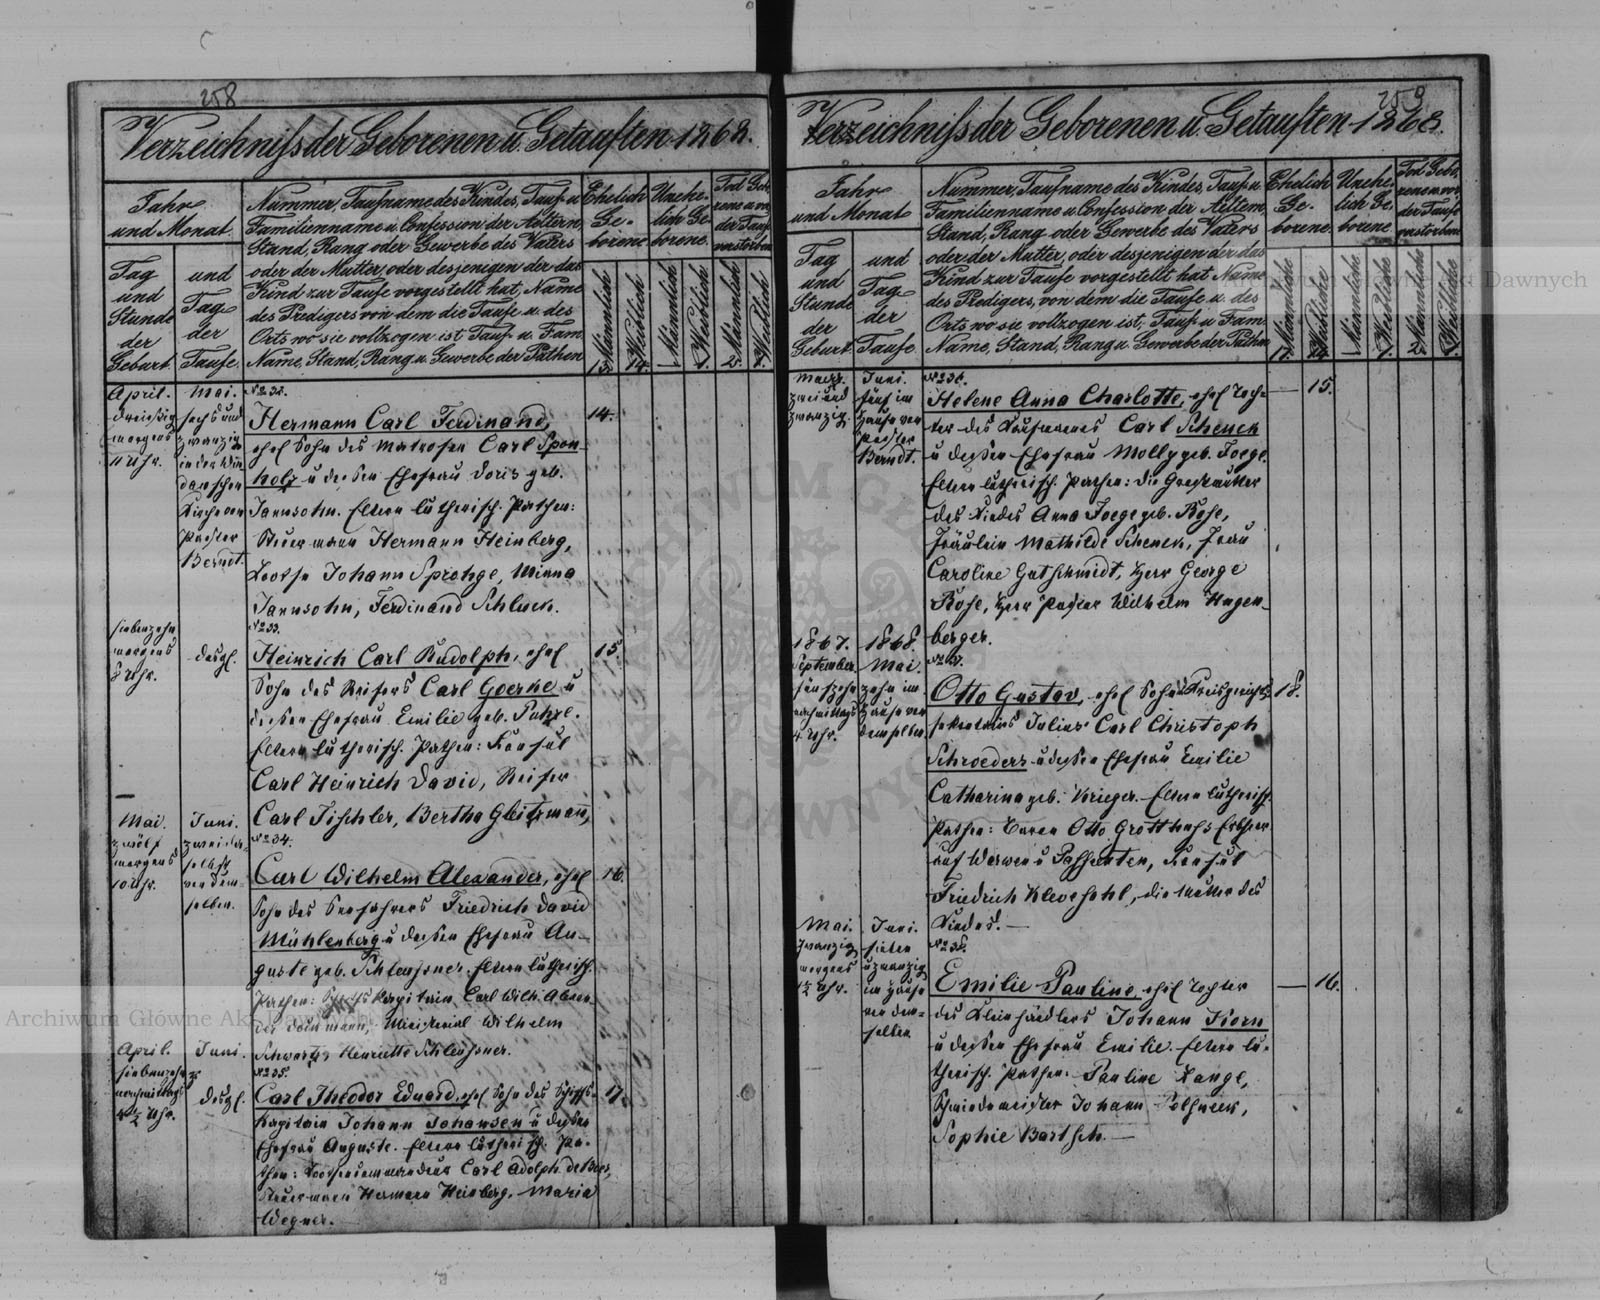 258
Verzeichniss der Geborenen u. Getauften 1868.
Jahr
und Monat
Tag
und
Stunde
der
Geburt.
und
Tag
der
Taufe.
Nummer, Taufname des Kindes, Tauf- u.
Familienname u. Confession der Aeltern,
Stand, Rang oder Gewerbe des Vaters
oder der Mutter, oder desjenigen der das
Kind zur Taufe vorgestellt hat, Name
des Predigers von dem die Taufe u. des
Orts wo sie vollzogen ist, Tauf- u. Fam.
Name, Stand, Rang u. Gewerbe der Pathen
Ehelich
Ge-
borene
Unehe-
lich Ge-
borene.
Tod Geb.
rene u. vor
der Taufe
verstorbene
Männlich
Weiblich
Männlich
Weiblich
Männlich
Weiblich
13. 14. — 1. 2. 1.
April.
dreissig
morgens
11 Uhr.
Mai.
sechs und
zwanzig
in der Win
dauschen
Kirche von
Pastor
Berndt.
No 32.
Hermann Carl Ferdinand,
ehel Sohn des Matrosen Carl Spon-
holz u dessen Ehefrau Doris geb.
Jannsohn. Eltern lutherisch. Pathen:
Steuermann Hermann Heinberg,
Lootse Johann Sprohge, Minna
Jannsohn, Ferdinand Schluck.
14.
siebenzehn
morgens
8 Uhr.
desgl.
No 33.
Heinrich Carl Rudolph, ehel
Sohn des Reifers Carl Goerke u
dessen Ehefrau Emilie geb.
Eltern lutherisch. Pathen: Konsul
Carl Heinrich David, Reifer
Carl Fischler, Bertha Gleitzmann,
15.
Mai.
zwölf
morgens
10 Uhr.
Juni.
zwei da-
selbst
von dem-
selben.
No 34.
Carl Wilhelm Alexander, ehel
Sohn des Seefahrers Friedrich David
Mühlenberg u dessen Ehefrau Au-
guste geb. Schleussner. Eltern lutherisch.
Pathen: Schiffs Kapitain Carl Wilh. Alexan-
der Ministerial Wilhelm
Schwartz, Henriette Schleussner.
16.
April.
siebenzehn
nachmittags
4½ Uhr.
Juni.
2
desgl.
No 35.
Carl Theodor Eduard, ehel Sohn des Schiffs-
kapitain Johann Johansen u dessen
Ehefrau Auguste. Eltern lutherisch. Pa-
then: Lootsenkommandeur Carl Adolph de Boer,
Steuermann Hermann Heinberg, Maria
Wegner.
17.
259
Verzeichniss der Geborenen u. Getauften 1868.
Jahr
und Monat
Tag
und
Stunde
der
Geburt.
und
Tag
der
Taufe
Nummer, Taufname des Kindes, Tauf- u.
Familienname u. Confession der Aeltern,
Stand, Rang oder Gewerbe des Vaters
oder der Mutter, oder desjenigen der das
Kind zur Taufe vorgestellt hat, Name
des Predigers, von dem die Taufe u. des
Orts wo sie vollzogen ist, Tauf- u. Fam.
Name, Stand, Rang u. Gewerbe der Pathen
Ehelich
Ge-
borene
Unehe-
lich Ge-
borene.
Tod Gebo-
rene u. vor
der Taufe
verstorbene
Männliche
Weibliche
Männliche
Weibliche
Männliche
Weibliche
17. 14. — 1. 2. 1.
Maerz.
zwei und
zwanzig.
Juni.
fünf im
Hause von
Pastor
Berndt.
No 36.
Helene Anna Charlotte, ehel Toch-
ter des Kaufmanns Carl Schenck
u dessen Ehefrau Molly geb. Joege.
Eltern lutherisch. Pathen: die Großmutter
des Kindes Anna Joege geb. Rose,
Fräulein Mathilde Schenck, Frau
Caroline Gutschmidt, Herr George
Rose, Herr Pastor Wilhelm Hugen-
berger.
— 15.
1867.
September.
fünfzehn
nachmittags
4 Uhr.
1868.
Mai.
zehn im
Hause von
demselben.
No 37.
Otto Gustav, ehel Sohn d. Kreisgerichts-
sekretairs Julius Carl Christoph
Schroeders u dessen Ehefrau Emilie
Catharina geb. Krieger. Eltern lutherisch
Pathen: Baron Otto Grotthuss Erbherr
auf Werwen u Passexten, Konsul
Friedrich Klevesahl, die Mutter des
Kindes. —
18.
Mai.
zwanzig
morgens
1½ Uhr.
Juni.
sieben
u zwanzig
im Hause
von dem-
selben
No 38.
Emilie Pauline, ehel Tochter
des Kleinhändlers Johann Korn
u dessen Ehefrau Emilie. Eltern lu-
therisch. Pathen: Pauline Lange,
Schmiedemeister Johann
Sophie Bartsch. —
— 16.
Archiwum Główne Akt Dawnych
Akt Dawnych